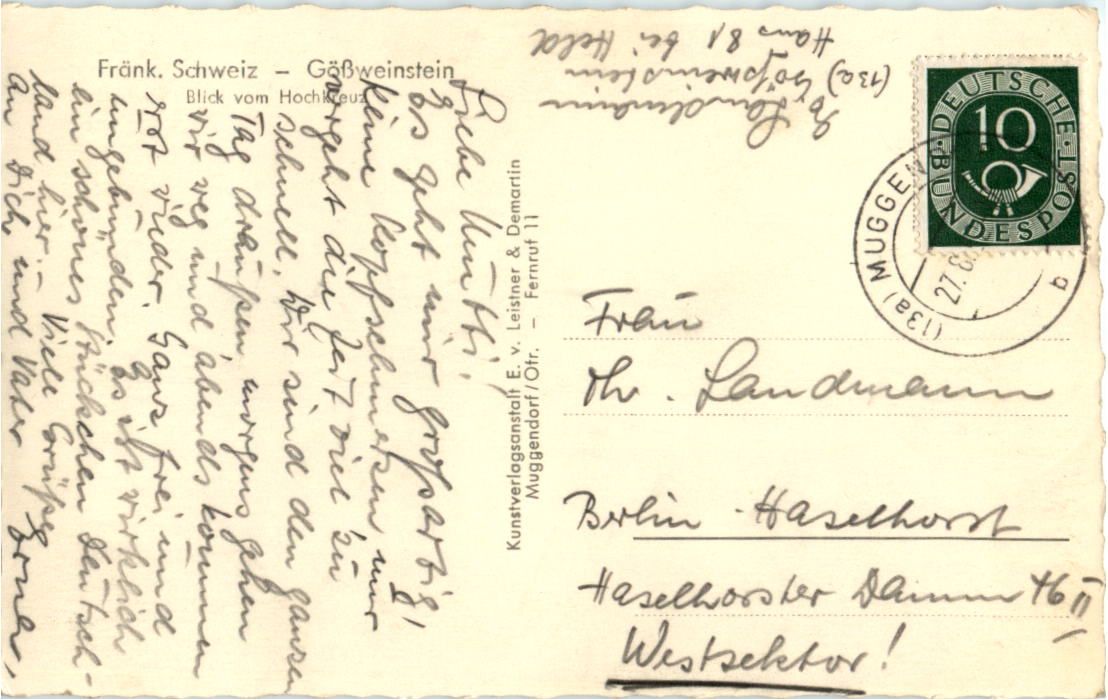 Fränk. Schweiz – Gößweinstein
Blick vom Hochkreuz
Liebe Mutti!
Es geht mir großartig!
Keine Kopfschmerzen, nur
vergeht die Zeit viel zu
schnell. Wir sind den ganzen
Tag draußen, morgens gehen
wir weg und abends kommen
erst wieder. Ganz frei und
ungebunden. Es ist wirklich
ein schönes Stückchen Deutsch-
land hier. – Viele Grüße
an Dich und Vater Erna.
Kunstverlagsanstalt E. v. Leistner & Demartin
Muggendorf/Ofr. – Fernruf 11
Landmann
(13a) Gößweinstein
Haus 81 bei Held
DEUTSCHE BUNDESPOST
10
(13a) MUGGEN
27.8.
b
Frau
Landmann
Berlin-Haselhorst
Haselhorster Damm 46 II
Westsektor!